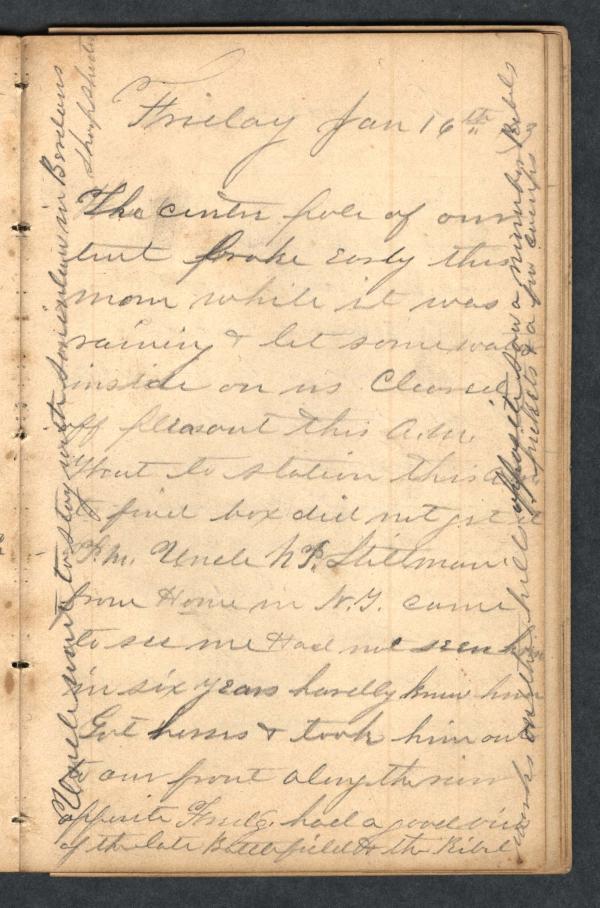 Friday Jan 16th 63
The center pole of our
tent broke early this
morn while it was
raining & let some water
inside on us Cleared
off pleasant this A.M.
Went to station this A
to find box did not get it
P.M. Uncle N.P. Stillman
from Home in N.Y. came
to see me Had not seen him
in six years hardly knew him
Got horses & took him out
to our front along the river
opposite Fredg. had a good view
of the late Battlefield & the Rebel
works on the hills opposite saw a number Rebel
pickets & a few camps
Uncle went to stay with in Berdans
Sharpshooters